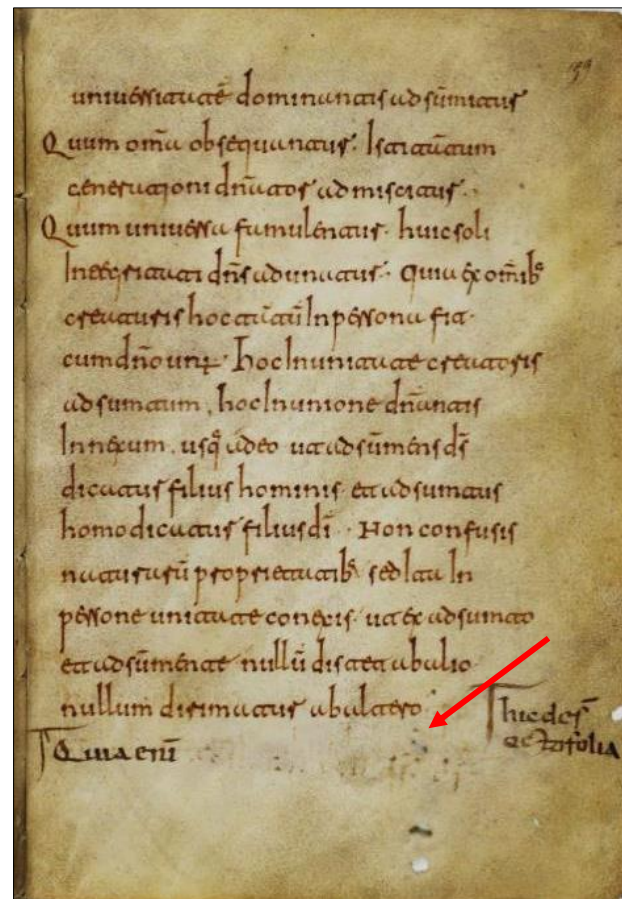 uniuersitatē dominantis adsūmitur
Quum om̄a obsequantur. Ista tātum
generationi dn̄atoris admiscitur.
Quum uniuersa famulēntur. huic soli
Integritati dn̄s adunatur. Quia ex om̄ib;
creaturis hoc tātū In persona fit.
cum dn̄o unū. hoc In unitate creatoris
adsumtum, hoc In unione dn̄antis
Innexum. usq; adeo ut adsūmens ds̄
dicatur filius hominis et adsumtus
homo dicatur filius dī. Non confusis
naturarū proprietatib; sed ita In
persone unitate conexis. ut ex adsumto
et adsūmente nullū distet ab alio.
nullum dirimatur ab altero.
hic des̄
folia
Quia enī